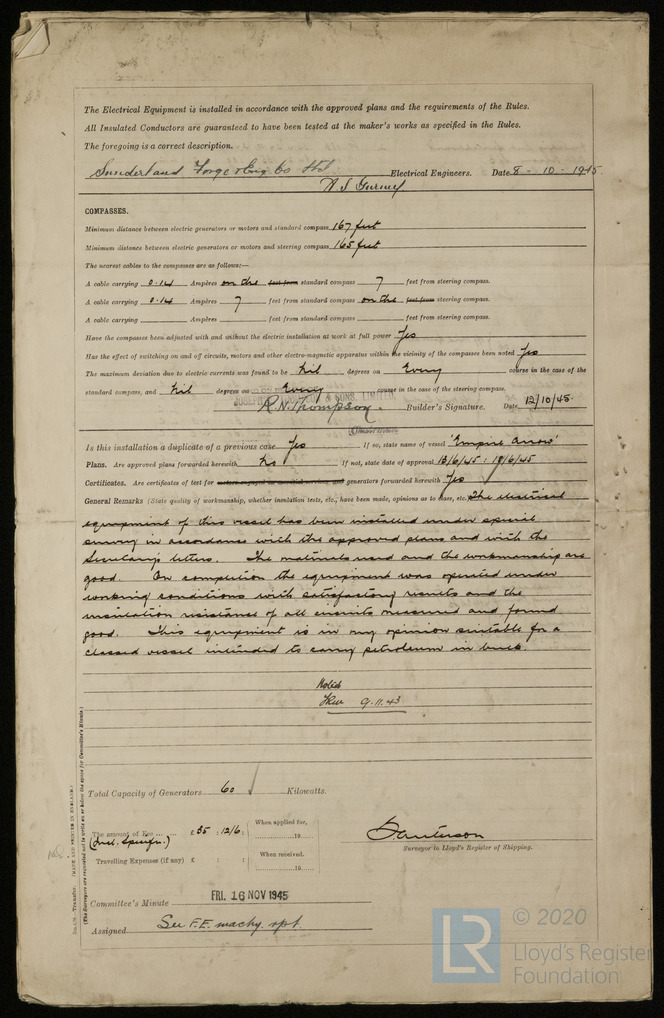 The Electrical Equipment is installed in accordance with the approved plans and the requirements of the Rules.
All Insulated Conductors are guaranteed to have been tested at the maker's works as specified in the Rules.
The foregoing is a correct description.
Sunderland Forge & Eng Co Ltd Electrical Engineers. Date 8 - 10 - 1945
COMPASSES.
Minimum distance between electric generators or motors and standard compass 167 feet
Minimum distance between electric generators or motors and steering compass 165 feet
The nearest cables to the compasses are as follows:—
A cable carrying 0.14 Ampères on the feet from standard compass 7 feet from steering compass.
A cable carrying 0.14 Ampères 7 feet from standard compass on the feet from steering compass.
A cable carrying Ampères feet from standard compass feet from steering compass.
Have the compasses been adjusted with and without the electric installation at work at full power Yes
Has the effect of switching on and off circuits, motors and other electro-magnetic apparatus within the vicinity of the compasses been noted Yes
The maximum deviation due to electric currents was found to be Nil degrees on Every course in the case of the
standard compass, and Nil degrees on Every course in the case of the steering compass.
JOSEPH L. THOMPSON & SONS, LIMITED
R.N. Thompson. Builder's Signature. Date 12/10/45.
Is this installation a duplicate of a previous case Yes If so, state name of vessel 'Empire Arrow'
Plans. Are approved plans forwarded herewith No If not, state date of approval 13/6/45 : 19/6/45
Certificates. Are certificates of test for generators forwarded herewith Yes
General Remarks (State quality of workmanship, whether insulation tests, etc., have been made, opinions as to case, etc. The electrical
equipment of this vessel has been installed under special
survey in accordance with the approved plans and with the
Secretary's letters. The materials used and the workmanship are
good. On completion the equipment was operated under
working conditions with satisfactory results and the
insulation resistance of all circuits measured and found
good. This equipment is in my opinion suitable for a
classed vessel intended to carry petroleum in bulk.
Noted
9.11.43
Total Capacity of Generators 60 Kilowatts.
The amount of Fee ... ... £ 35 : 12/6 : When applied for, 19
(Incl. Specifn.)
Travelling Expenses (if any) £ : : When received. 19
Surveyor to Lloyd's Register of Shipping.
Committee's Minute FRI. 16 NOV 1945
Assigned See F.E. machy. rpt.
(MADE AND PRINTED IN ENGLAND.)
(The Surveyors are requested not to write on or below the space for Committee's Minute.)
LR
© 2020
Lloyd's Register
Foundation